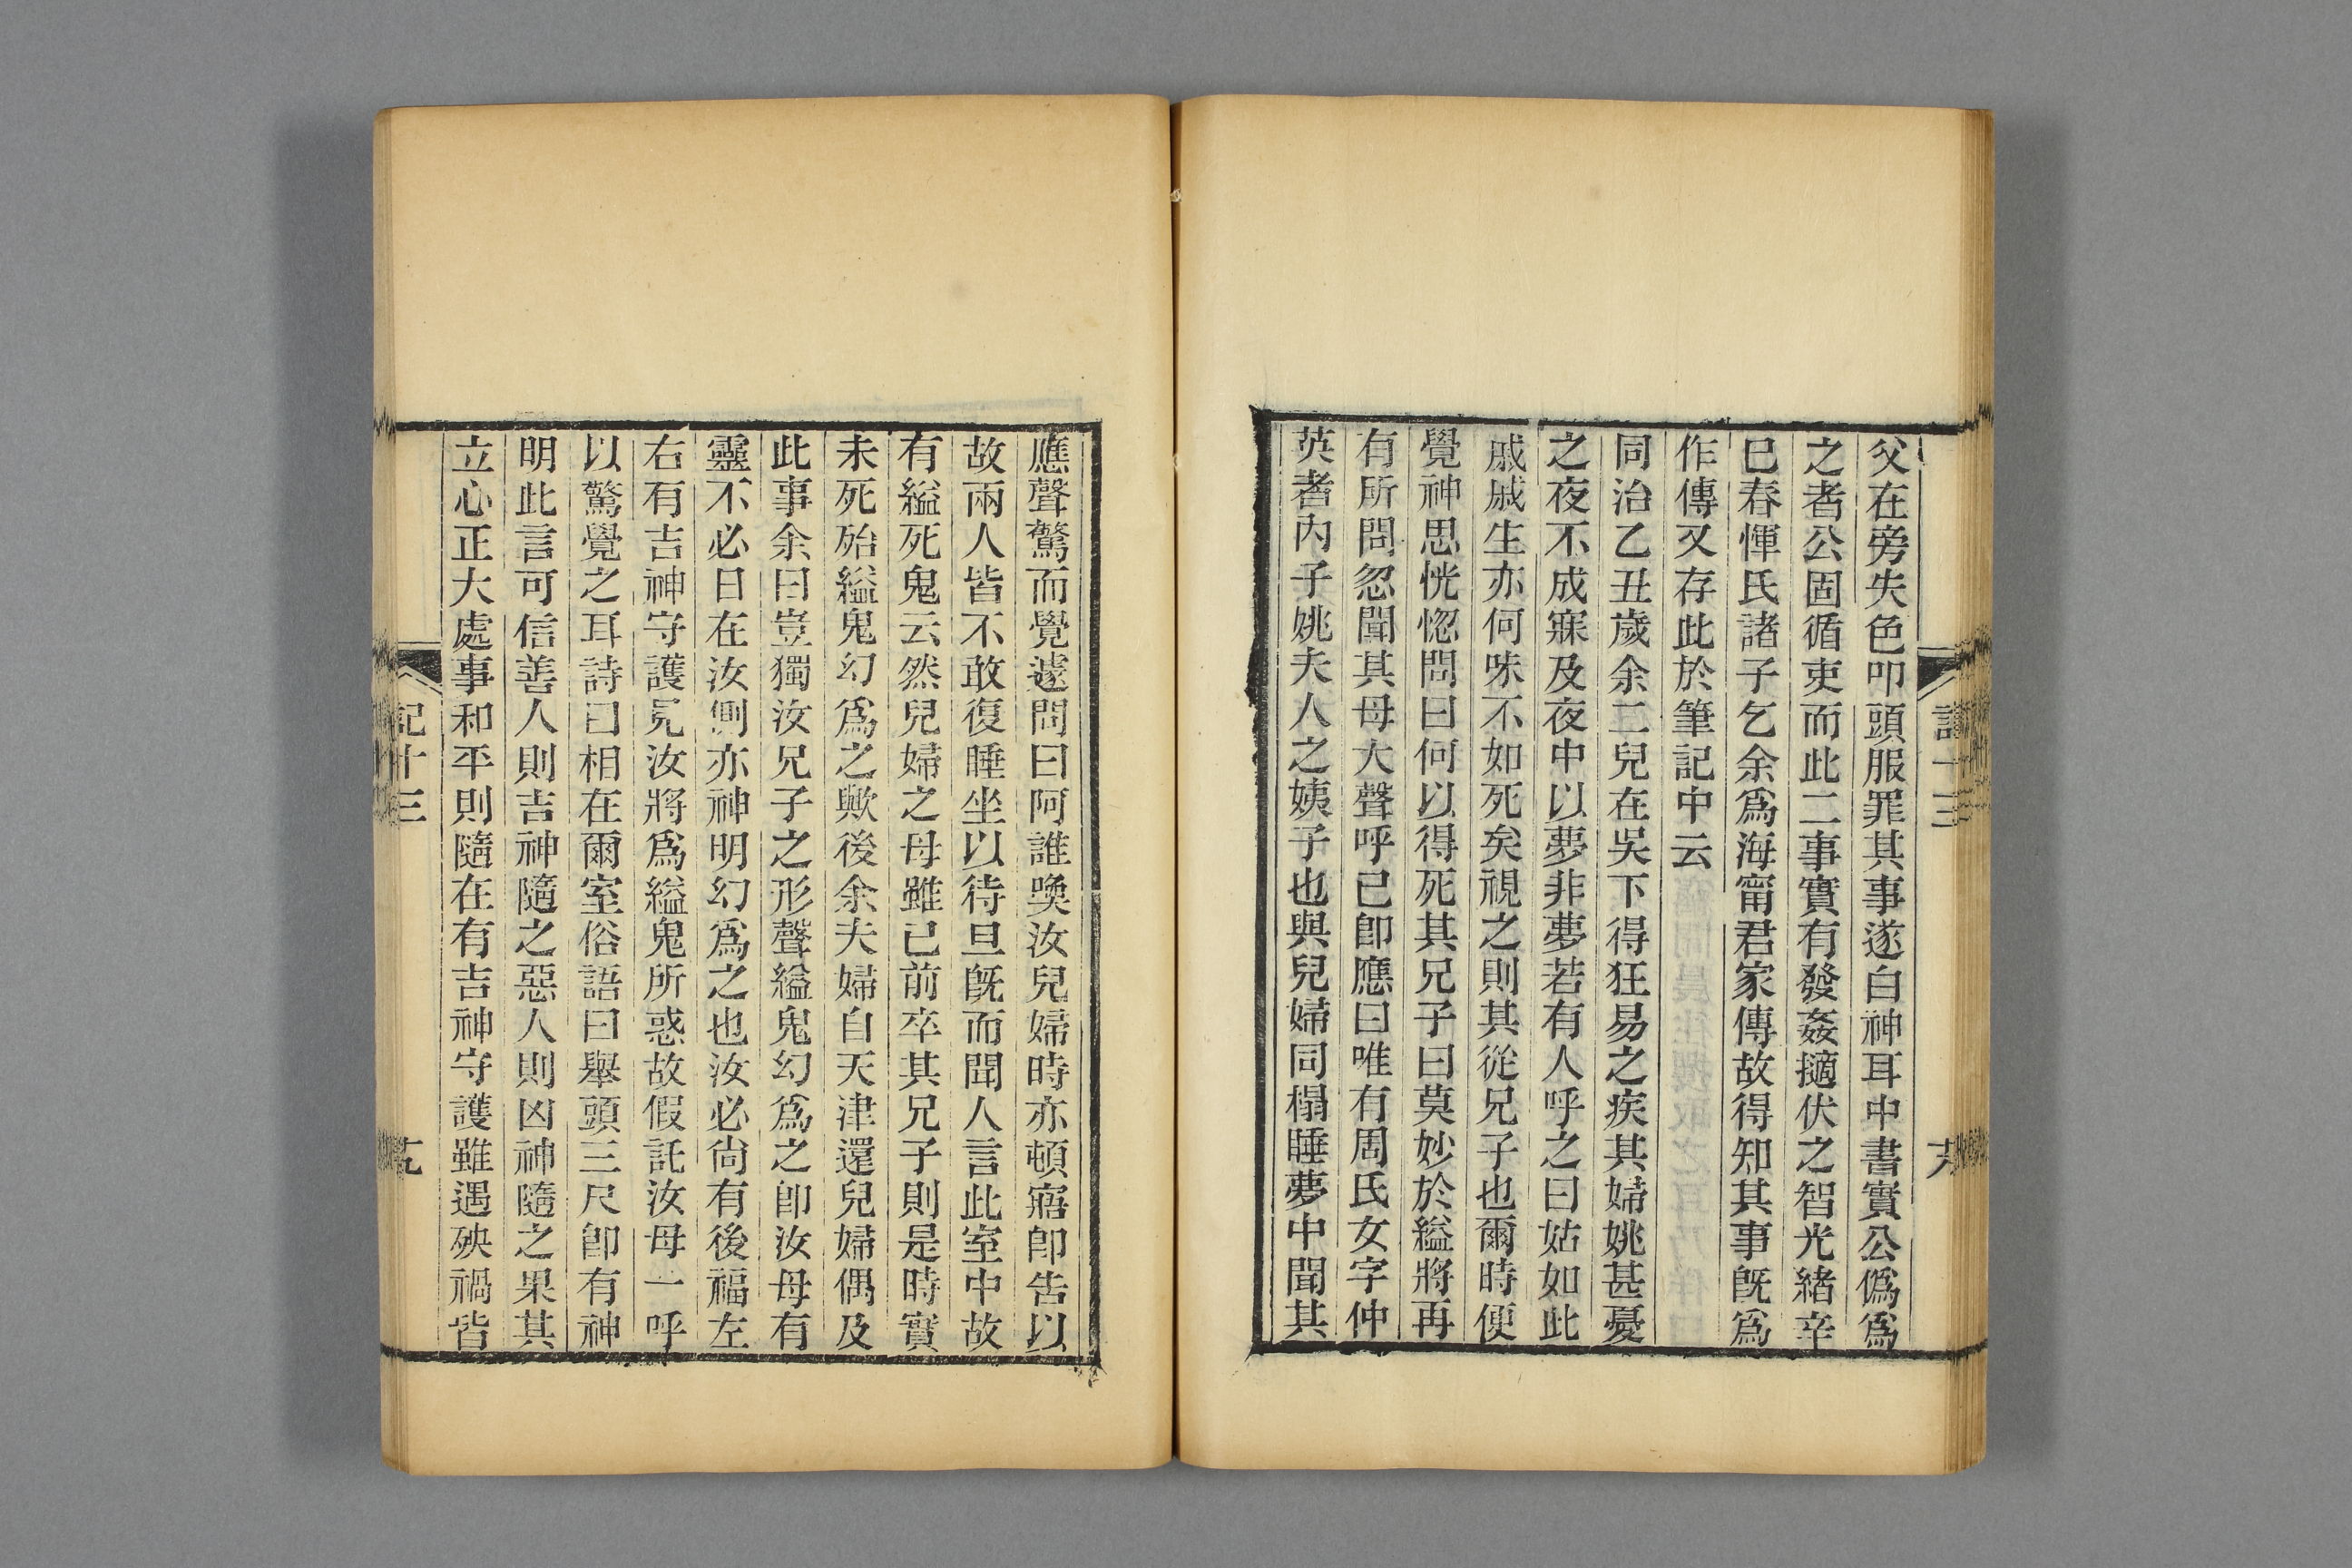 父在旁失色叩頭服罪其事遂白神耳中書實公僞爲
之者公固循吏而此二事實有發姦擿伏之智光緒辛
巳春惲氏諸子乞余爲海甯君家傳故得知其事旣爲
作傳又存此於筆記中云
同治乙丑歲余二兒在吳下得狂易之疾其婦姚甚憂
之夜不成寐及夜中以夢非夢若有人呼之曰姑如此
戚戚生亦何味不如死矣視之則其從兄子也爾時便
覺神思恍惚問曰何以得死其兄子曰莫妙於縊將再
有所問忽聞其母大聲呼己卽應曰唯有周氏女字仲
英者內子姚夫人之姨子也與兒婦同榻睡夢中聞其
應聲驚而覺遽問曰阿誰喚汝兒婦時亦頓寤卽告以
故兩人皆不敢復睡坐以待旦旣而聞人言此室中故
有縊死鬼云然兒婦之母雖已前卒其兄子則是時實
未死殆縊鬼幻爲之歟後余夫婦自天津還兒婦偶及
此事余曰豈獨汝兄子之形聲縊鬼幻爲之卽汝母有
靈不必日在汝側亦神明幻爲之也汝必尙有後福左
右有吉神守護見汝將爲縊鬼所惑故假託汝母一呼
以驚覺之耳詩曰相在爾室俗語曰舉頭三尺卽有神
明此言可信善人則吉神隨之惡人則凶神隨之果其
立心正大處事和平則隨在有吉神守護雖遇殃禍皆
記十三